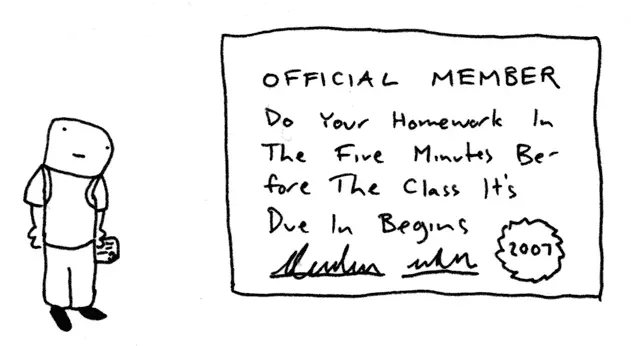 OFFICIAL MEMBER
Do Your Homework In
The Five Minutes Be-
fore The Class It's
Due In Begins
2007